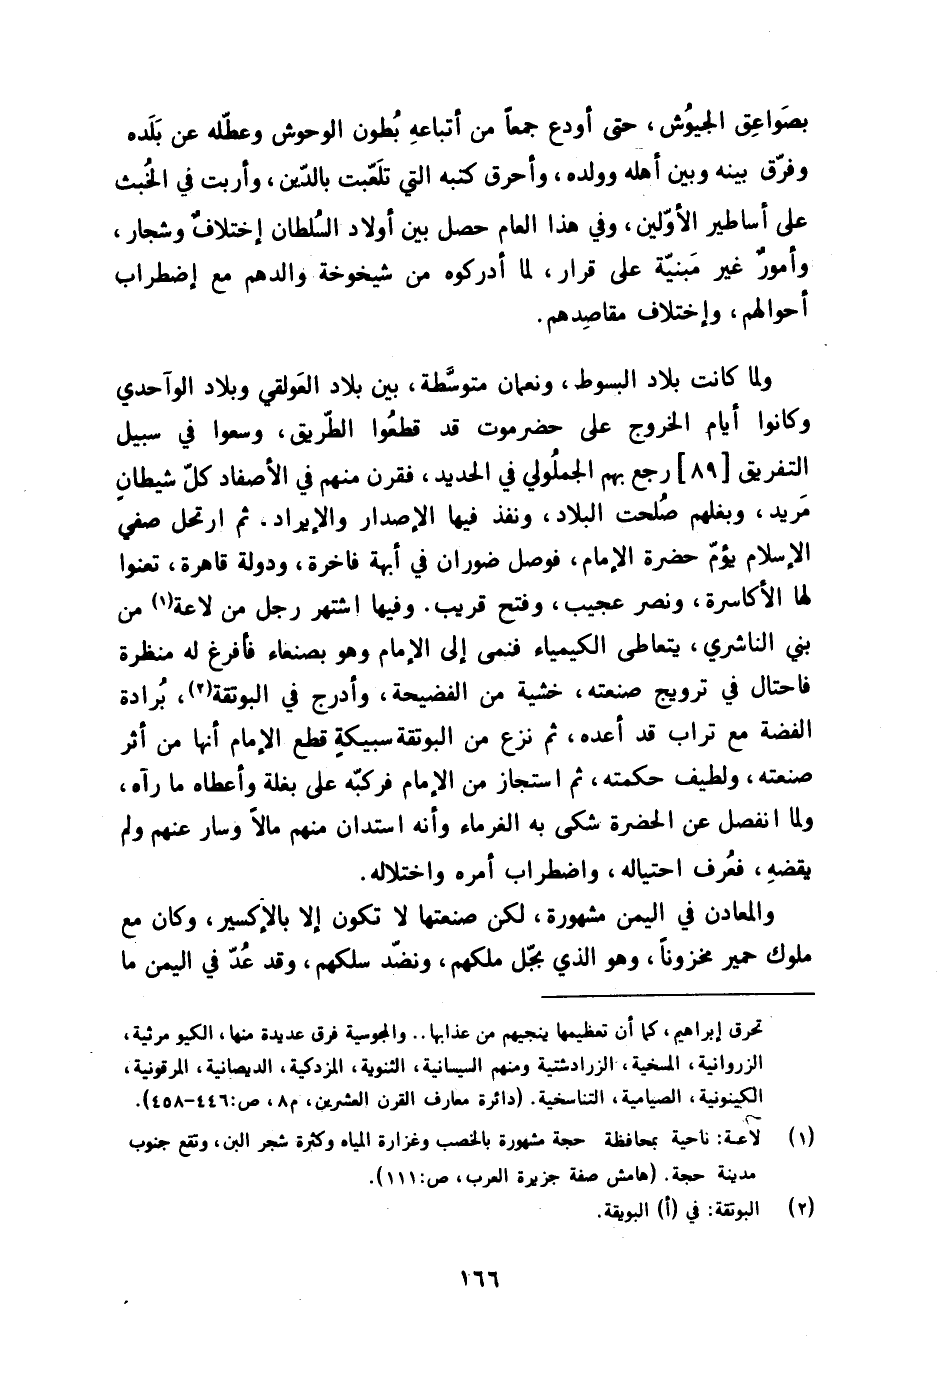 بصَواعِق الجيوُش، حتى أودع جمعاً من أتباعهِ بُطون الوحوش وعطّله عن بَلَده
وفرّق بينه وبين أهله وولده، وأحرق كتبه التي تلَعّبت بالدّين، وأربت في الخُبث
على أساطير الأوّلين، وفي هذا العام حصل بين أولاد السُلطان إختلافٌ وشجار،
وأمورٌ غير مَبنيّة على قرار، لما أدركوه من شيخوخة والدهم مع إضطراب
أحوالهم، وإختلاف مقاصِدهم.
ولما كانت بلاد البسوط، ونعمان متوسَّطة، بين بلاد العَولقي وبلاد الوآحدي
وكانوا أيام الخروج على حضرموت قد قطعُوا الطّريق، وسعوا في سبيل
التفريق [٨٩] رجع بهم الجملُولي في الحديد، فقرن منهم في الأصفاد كلّ شيطانٍ
مَريد، وبغلهم صُلحت البلاد، ونفذ فيها الإصدار والإيراد. ثم ارتحل صفي
الإسلام يؤمّ حضرة الإمام، فوصل ضوران في أبهة فاخرة، ودولة قاهرة، تعنوا
لها الأكاسرة، ونصر عجيب، وفتح قريب. وفيها اشتهر رجل من لاعة(١) من
بني الناشري، يتعاطى الكيمياء فنمى إلى الإمام وهو بصنعاء فأفرغ له منظرة
فاحتال في ترويج صنعته، خشية من الفضيحة، وأدرج في البوتقة(٢)، بُرادة
الفضة مع تراب قد أعده، ثم نزع من البوتقة سبيكةٍ قطع الإمام أنها من أثر
صنعته، ولطيف حكمته، ثم استجاز من الإمام فركبّه على بغلة وأعطاه ما رآه،
ولما انفصل عن الحضرة شكى به الغرماء وأنه استدان منهم مالاً وسار عنهم ولم
يقضهِ، فعُرف احتياله، واضطراب أمره واختلاله.
والمعادن في اليمن مشهورة، لكن صنعتها لا تكون إلا بالإكسير، وكان مع
ملوك حمير مخزوناً، وهو الذي بجّل ملكهم، ونضّد سلكهم، وقد عُدّ في اليمن ما
تحرق إبراهيم، كما أن تعظيمها ينجيهم من عذابها.. والمجوسية فرق عديدة منها، الكيو مرثية،
الزروانية، المسخية، الزرادشتية ومنهم السيسانية، الثنوية، المزدكية، الديصانية، المرقونية،
الكينونية، الصيامية، التناسخية. (دائرة معارف القرن العشرين، م٨، ص:٤٤٦-٤٥٨).
(١) لاعة: ناحية بمحافظة حجة مشهورة بالخصب وغزارة المياه وكثرة شجر البن، وتقع جنوب
مدينة حجة. (هامش صفة جزيرة العرب، ص:١١١).
(٢) البوتقة: في (أ) البويقة.
١٦٦